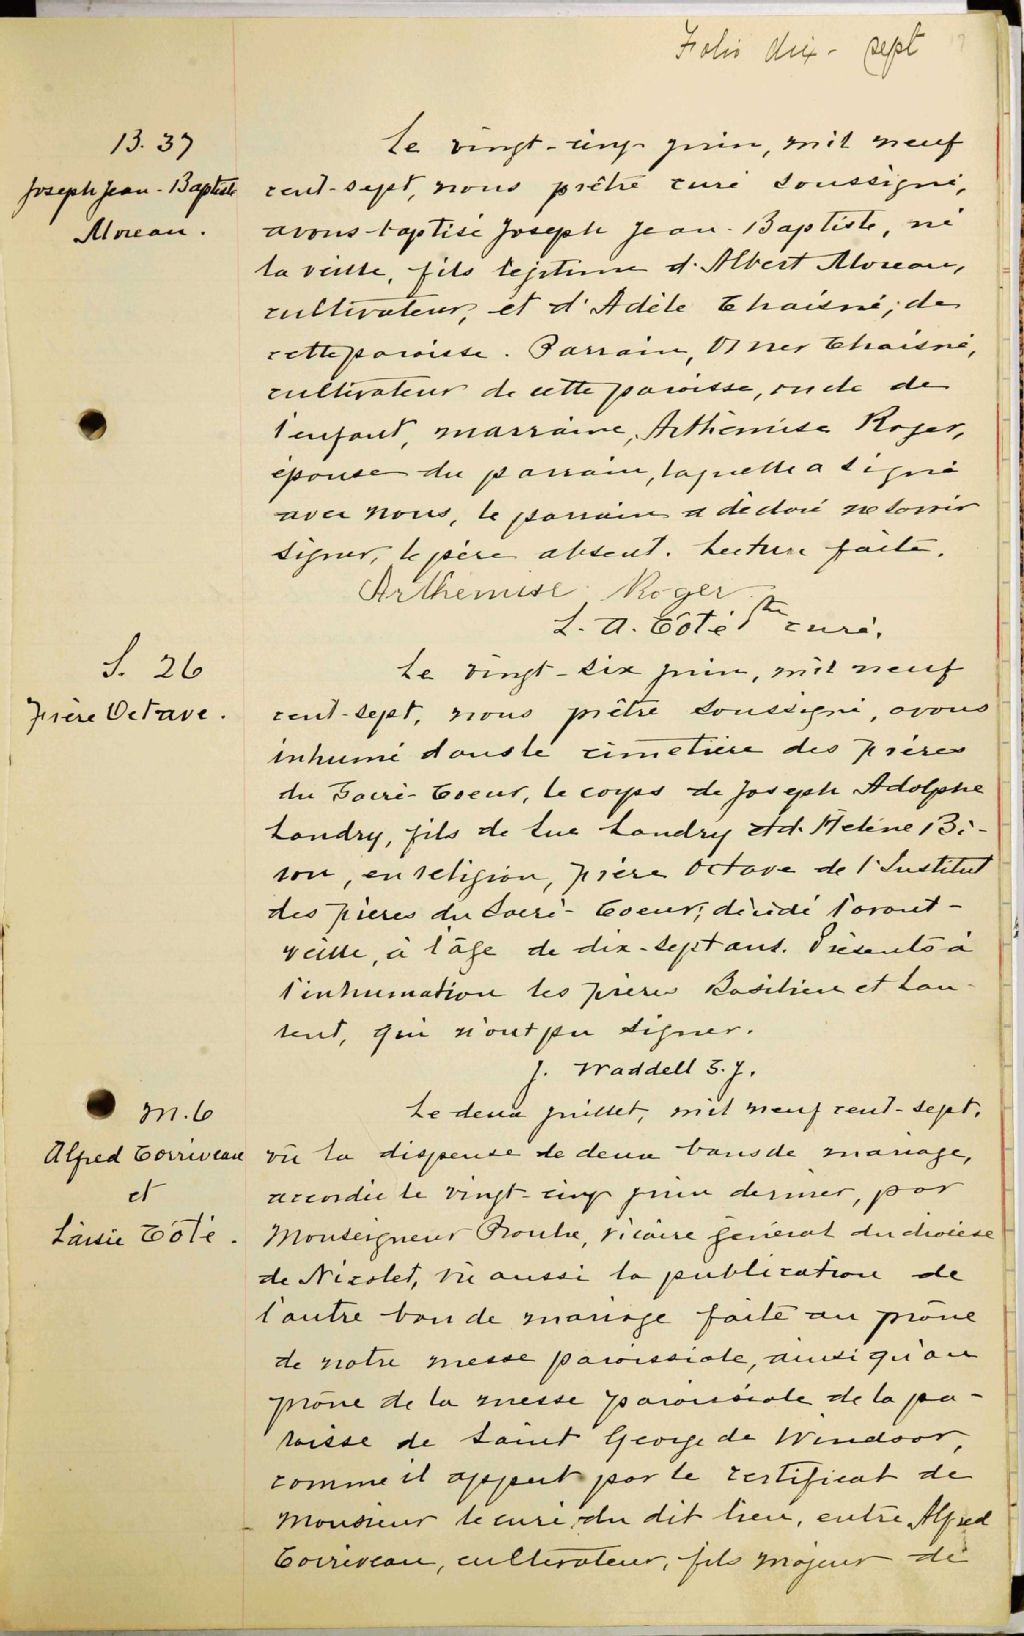 Folio dix-sept
B. 37
Joseph Jean-Baptiste
Moreau.
Le vingt-cinq juin, mil neuf
cent-sept, nous prêtre curé soussigné,
avons baptisé Joseph Jean-Baptiste, né
la veille, fils légitime d'Albert Moreau,
cultivateur, et d'Adèle Chaisné, de
cette paroisse. Parrain, Omer Chaisné,
cultivateur de cette paroisse, oncle de
l'enfant, marraine, Arthémise Roger,
épouse du parrain, laquelle a signé
avec nous, le parrain a déclaré ne savoir
signer, le père absent. Lecture faite.
Arthemise Roger
L. A. Côté ptre curé.
S. 26
Frère Octave.
Le vingt-six juin, mil neuf
cent-sept, nous prêtre soussigné, avons
inhumé dans le cimetière des frères
du Sacré-Coeur, le corps de Joseph Adolphe
Landry, fils de Luc Landry et d'Hélène Bé-
ron, en religion, frère Octave de l'Institut
des frères du Sacré-Coeur, décédé l'avant-
veille, à l'âge de dix-sept ans. Présents à
l'inhumation les frères Basilien et Lau-
rent, qui n'ont pu signer.
J. Waddell S.J.
M. 6
Alfred Corriveau
et
Laisie Côté.
Le deux juillet, mil neuf cent-sept,
vu la dispense de deux bans de mariage,
accordée le vingt-cinq juin dernier, par
Monseigneur Proulx, vicaire général du diocèse
de Nicolet, vu aussi la publication de
l'autre ban de mariage faite au prône
de notre messe paroissiale, ainsi qu'au
prône de la messe paroissiale de la pa-
roisse de Saint George de Windsor,
comme il appert par le certificat de
Monsieur le curé du dit lieu, entre Alfred
Corriveau, cultivateur, fils majeur de